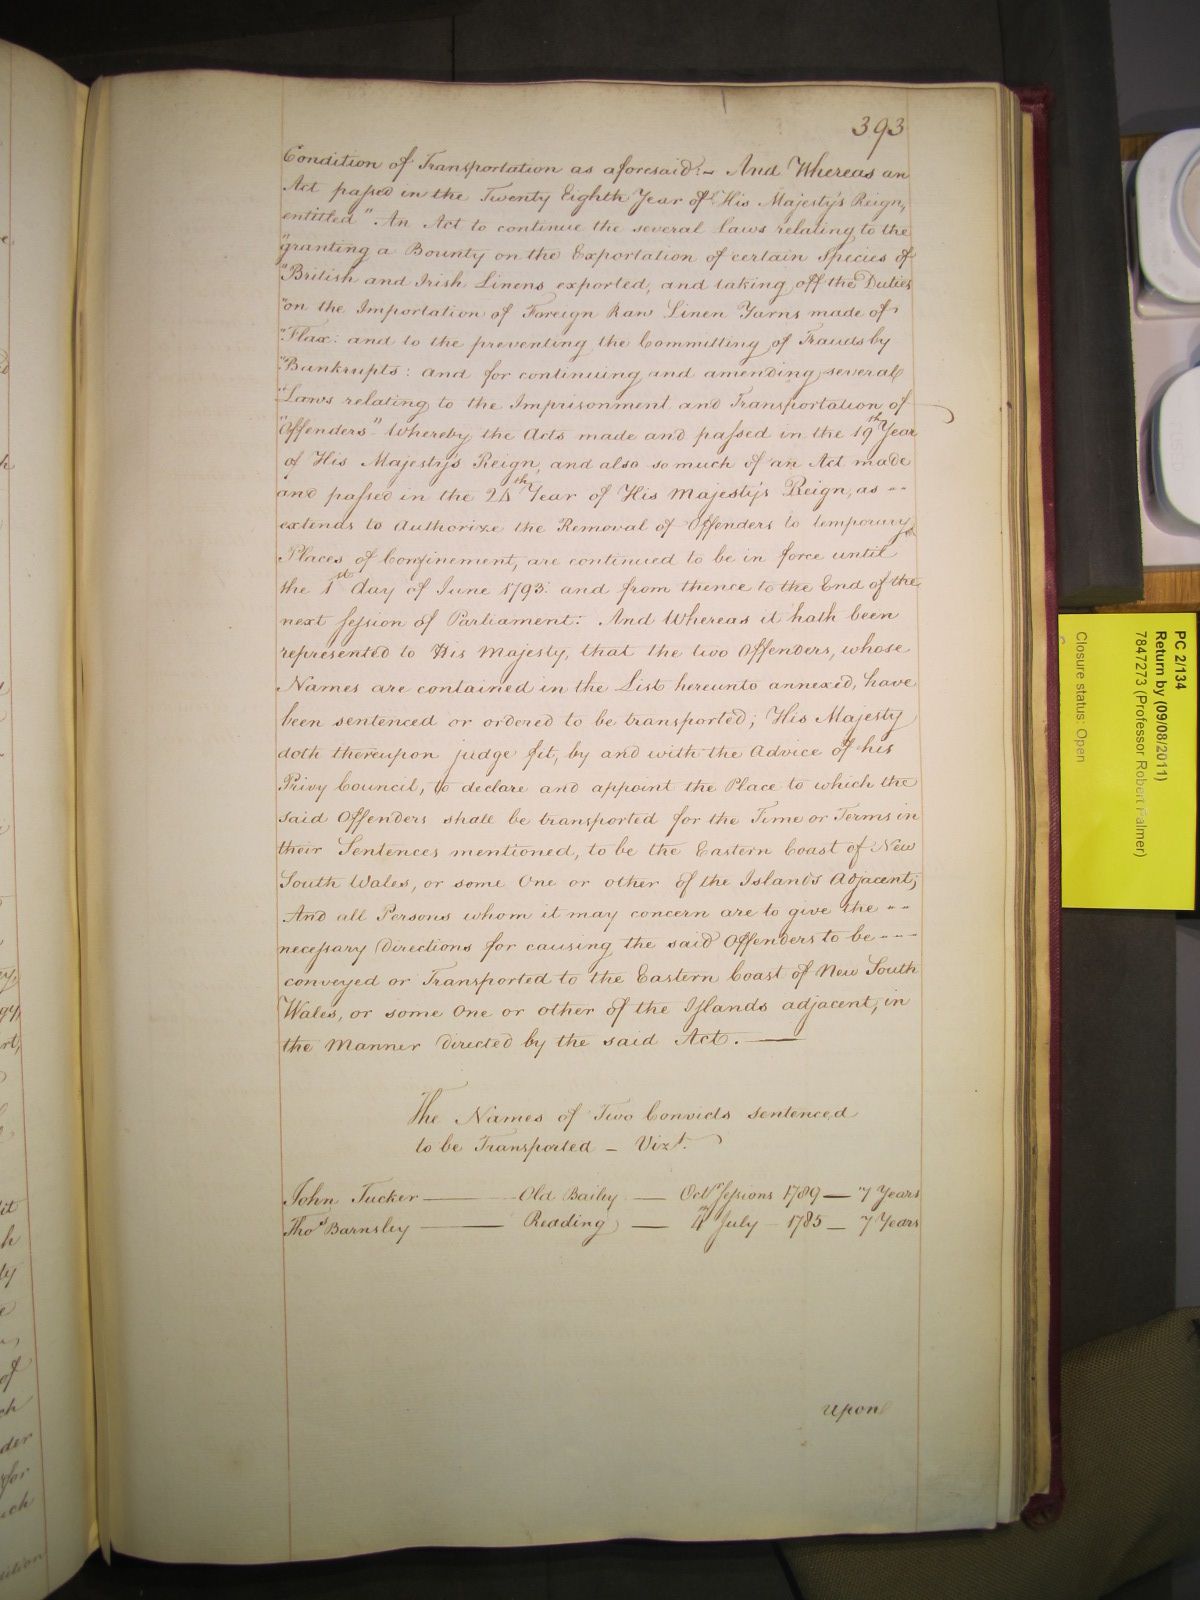 393
Condition of Transportation as aforesaid:– And Whereas an
Act passed in the Twenty Eighth Year of His Majesty's Reign,
entitled "An Act to continue the several Laws relating to the
"granting a Bounty on the Exportation of certain Species of
"British and Irish Linens exported, and taking off the Duties
"on the Importation of Foreign Raw Linen Yarns made of
"Flax: and to the preventing the Committing of Frauds by
"Bankrupts: and for continuing and amending several
"Laws relating to the Imprisonment and Transportation of
"Offenders" Whereby the Acts made and passed in the 19th Year
of His Majesty's Reign, and also so much of an Act made
and passed in the 24th Year of His Majesty's Reign, as --
extends to Authorize the Removal of Offenders to temporary
Places of Confinement, are continued to be in force until
the 1st day of June 1793: and from thence to the End of the
next Session of Parliament: And Whereas it hath been
represented to His Majesty, that the two Offenders, whose
Names are contained in the List hereunto annexed, have
been sentenced or ordered to be transported; His Majesty
doth thereupon judge fit, by and with the Advice of his
Privy Council, to declare and appoint the Place to which the
said Offenders shall be transported for the Time or Terms in
their Sentences mentioned, to be the Eastern Coast of New
South Wales, or some One or other of the Islands Adjacent;
And all Persons whom it may concern are to give the --
necessary Directions for causing the said Offenders to be ---
conveyed or Transported to the Eastern Coast of New South
Wales, or some One or other of the Islands adjacent, in
the Manner directed by the said Act. —
The Names of Two Convicts sentenced
to be Transported – Vizt.
John Tucker — Old Bailey — Octr Sessions 1789 — 7 Years
Thos Barnsley — Reading — 4th July – 1785 — 7 Years
Upon
PC 2/134
Return by (09/08/2011)
7847273 (Professor Robert Palmer)
Closure status: Open